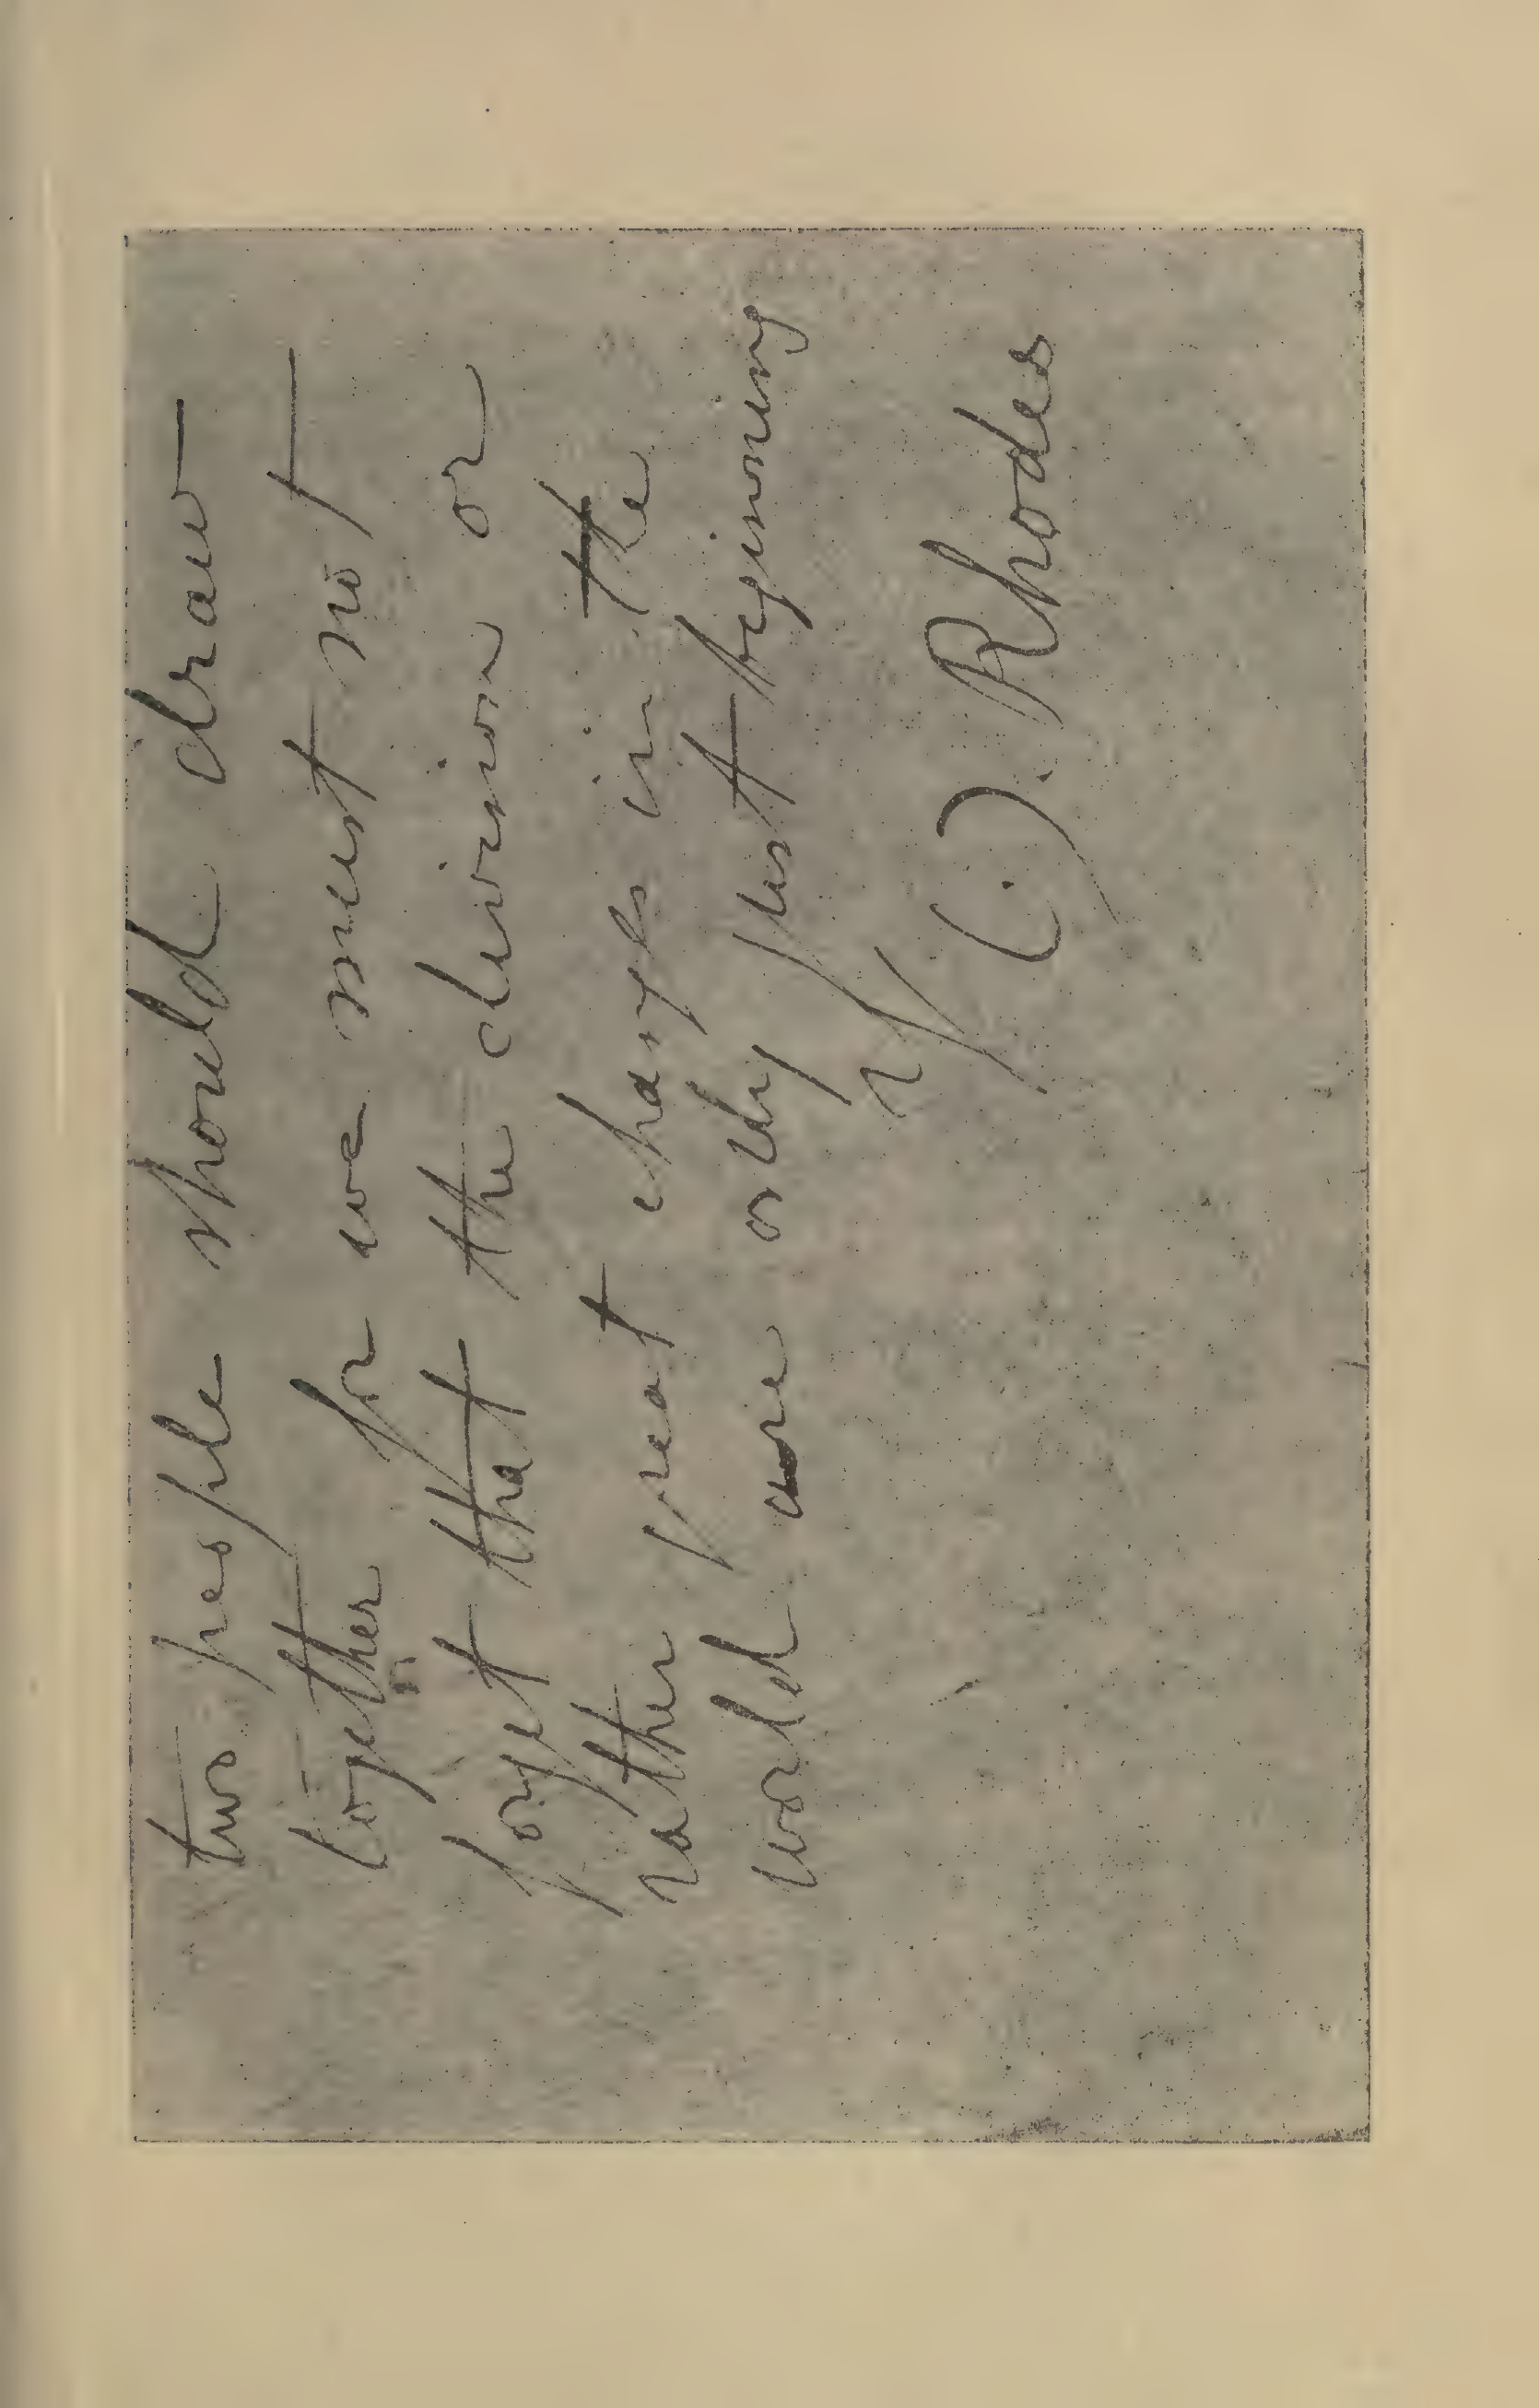 two people should draw
together for we must not
forget that the division or
rather great changes in the
world are only just beginning
Yr
C. J. Rhodes